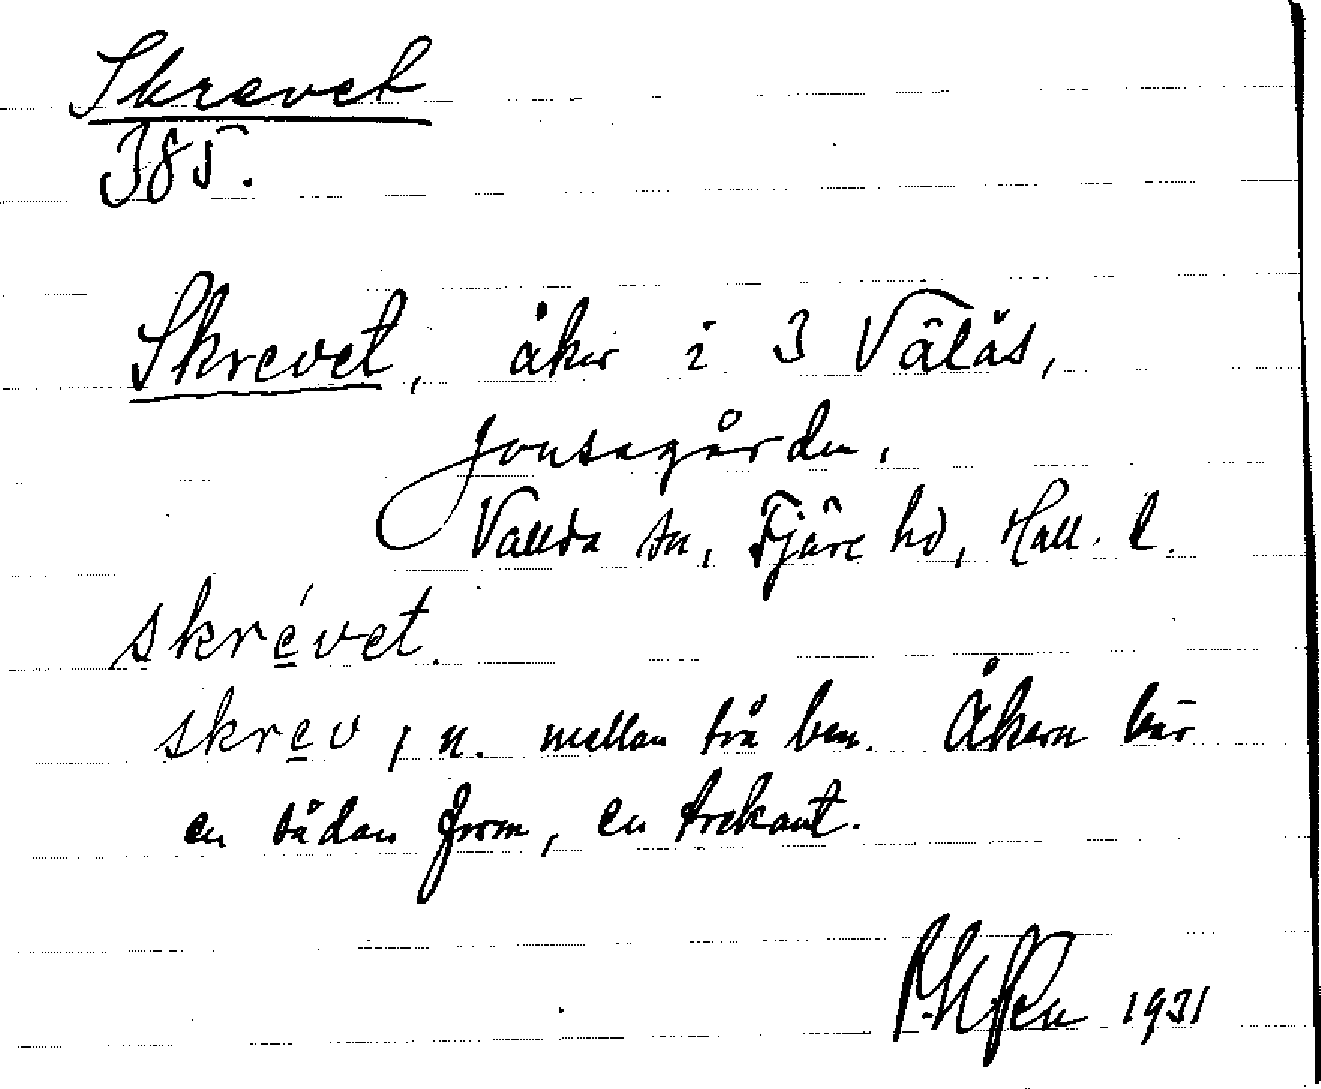 Skrevet
385.
Skrevet, åker i 3 Väläs,
Jonsagården.
Vallda sn, Fjäre hd, Hall. l.
skrévet.
skrev, n. mellan två ben. Åkern har
en sådan form, en trekant.
1931